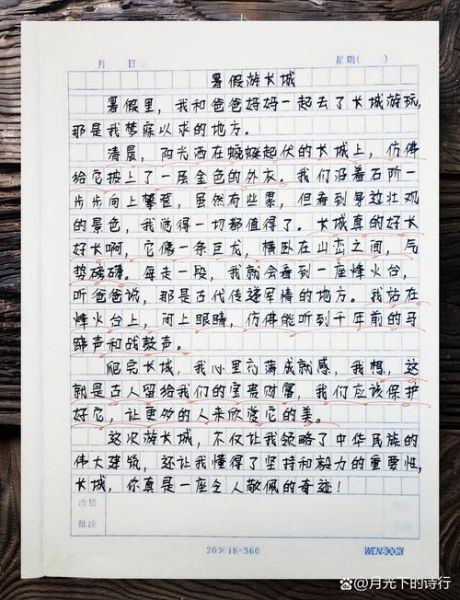 月 日 星期( )
暑假游长城
暑假里，我和爸爸妈妈一起去了长城游玩，
那是我梦寐以求的地方。
清晨，阳光洒在蜿蜒起伏的长城上，仿佛
给它披上了一层金色的外衣。我们沿着石阶一
步步向上攀登，虽然有些累，但看到身边壮观
的景色，我觉得一切都值得了。长城真的好长
好长啊，它像一条巨龙，横卧在山峦之间，气
势磅礴。每走一段，我就会看到一座烽火台，
听爸爸说，那是古代传递军情的地方。我站在
烽火台上，闭上眼睛，仿佛能听到千年前的马
蹄声和战鼓声。
爬完长城，我心里充满成就感，我想，这
就是古人留给我们的宝贵财富，我们应该保护
好它，让更多的人来欣赏它的美。
这次游长城，不仅让我领略了中华民族的
伟大建筑，还让我懂得了坚持和毅力的重要性，
长城，你真是一座令人敬佩的奇迹！
批注
20×18=360
WENBOOK
@月光下的诗行